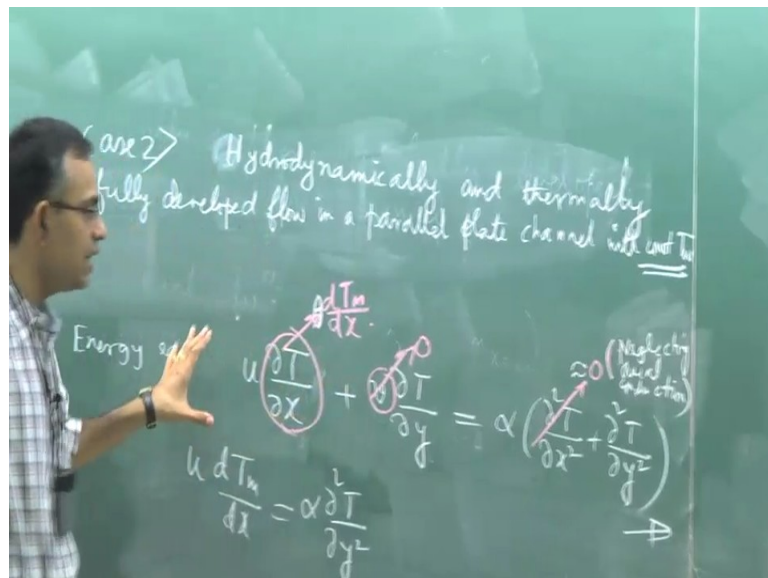 Case 2> Hydrodynamically and thermally
fully developed flow in a parallel plate channel with const Tw
Energy eq
u ∂T/∂x + v ∂T/∂y = α(∂²T/∂x² + ∂²T/∂y²)
θ dTm/dx
0
≈0 (Neglecting
axial
conduction)
u dTm/dx = α ∂²T/∂y²